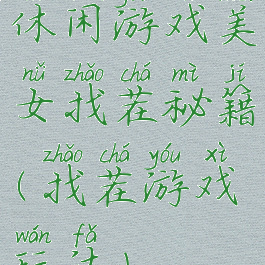 休闲游戏美
nǚ zhǎo chá mì jí
女找茬秘籍
zhǎo chá yóu xì
(找茬游戏
wán fǎ
玩法)